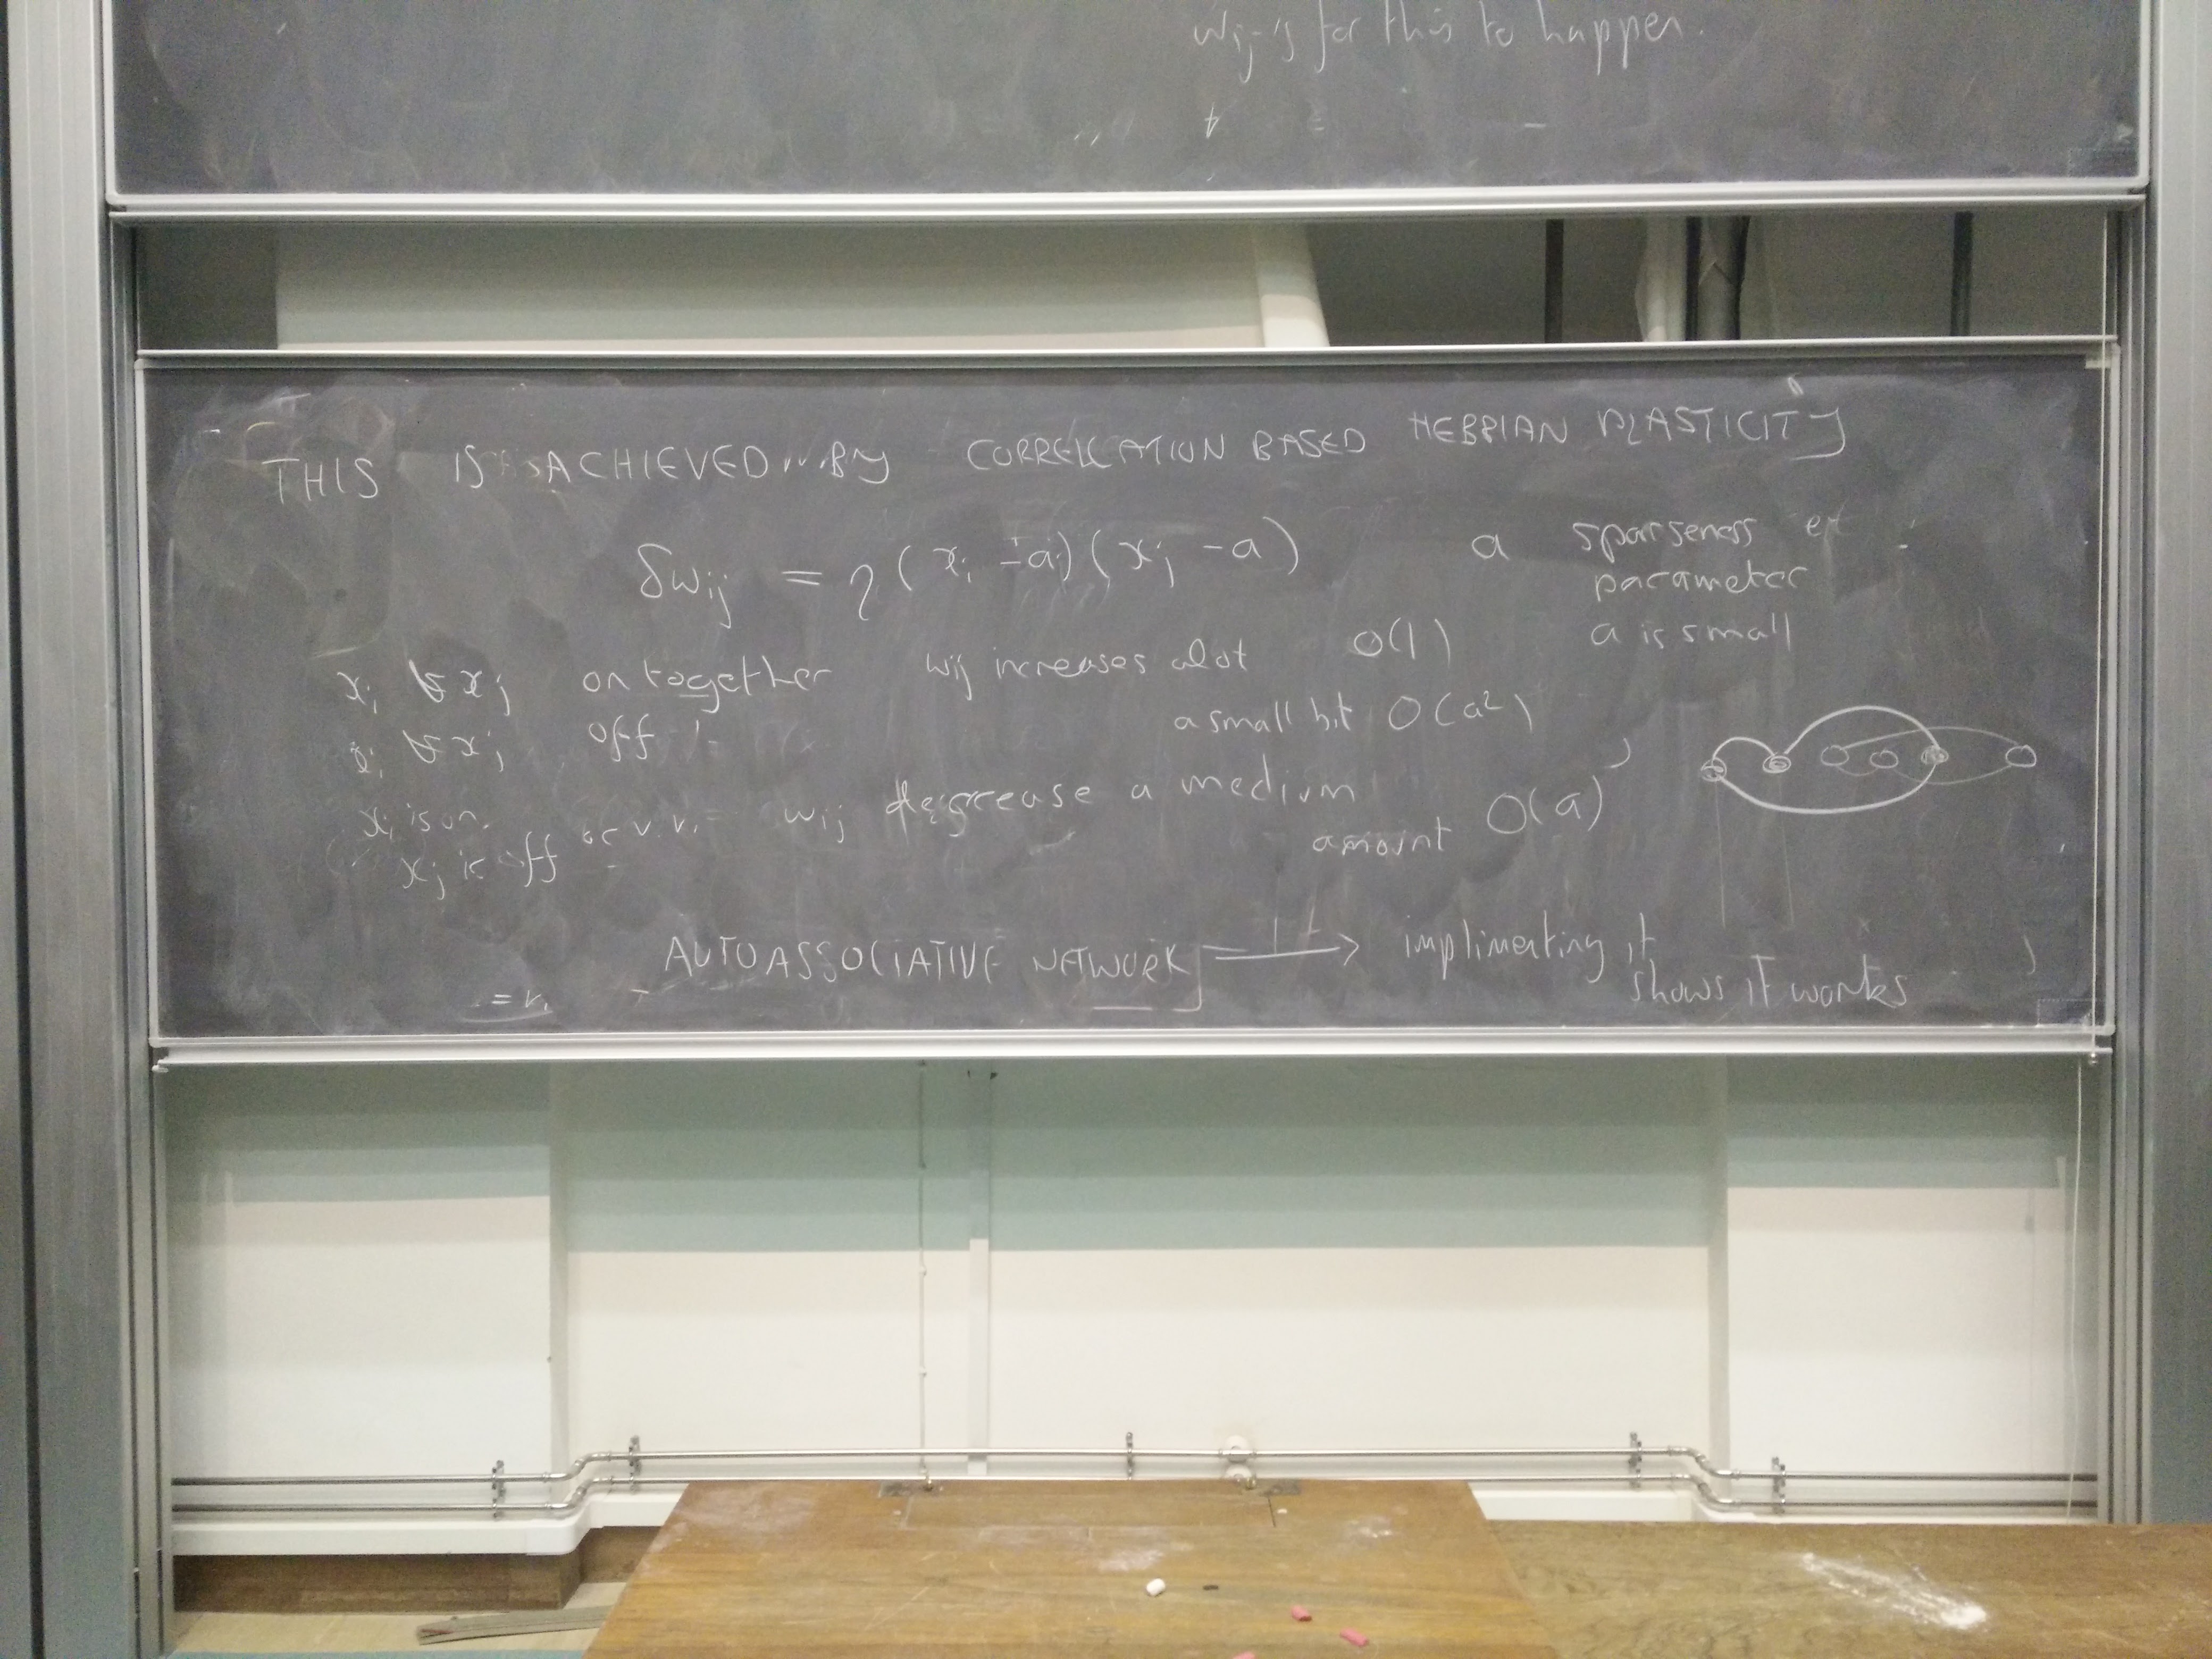 wij-s for this to happen.
THIS IS ACHIEVED BY CORRELATION BASED HEBBIAN PLASTICITY
δwij = η(xi - a)(xj - a)
a sparseness
parameter
a is small
xi & xj on together wij increases alot O(1)
xi & xj off " a small bit O(a²)
xi is on,
xj is off or v.v. wij decrease a medium
amount O(a)
AUTOASSOCIATIVE NETWORK → implimenting it
shows it works